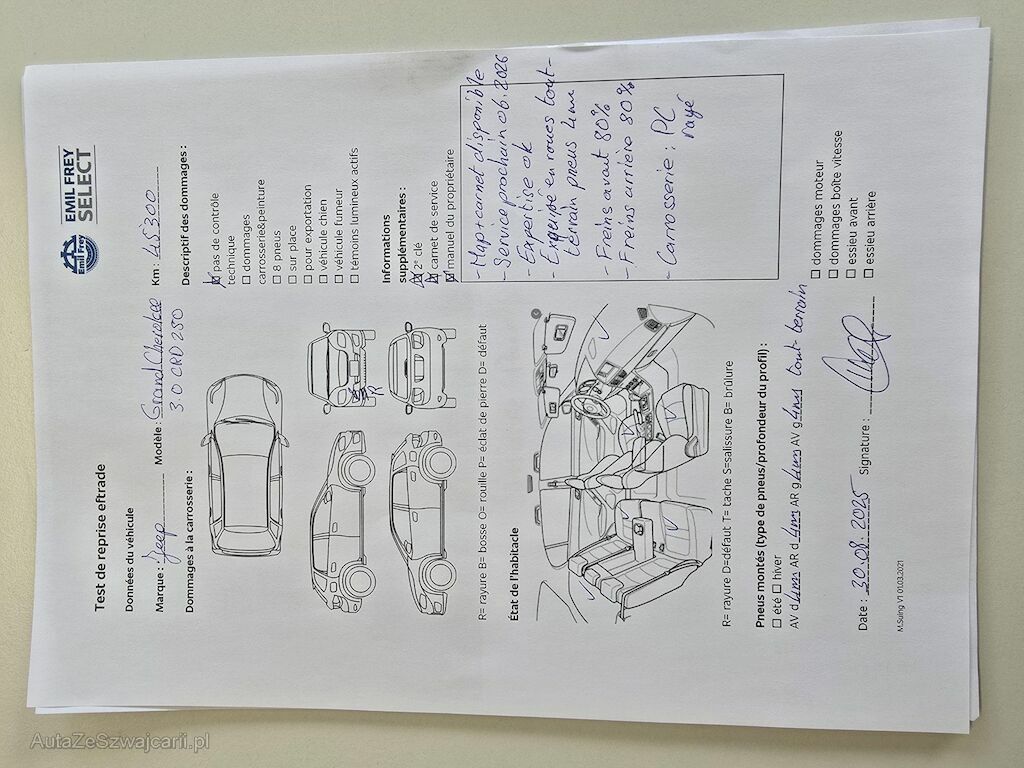 Emil Frey
EMIL FREY
SELECT
Test de reprise eftrade
Données du véhicule
Marque : Jeep Modèle : Grand Cherokee Km : 45'300
3.0 CRD 250
Dommages à la carrosserie :
Descriptif des dommages :
pas de contrôle
technique
dommages
carrosserie&peinture
8 pneus
sur place
pour exportation
véhicule chien
véhicule fumeur
témoins lumineux actifs
R
Informations
supplémentaires :
2° clé
carnet de service
manuel du propriétaire
R= rayure B= bosse O= rouille P= éclat de pierre D= défaut
État de l'habitacle
- Map+carnet disponible
- Service prochain 06.2026
- Expertise ok
- Equipé en roues tout-
terrain pneus 4mm
- Freins avant 80%
- Freins arriere 80%
- Carrosserie : PC
rayé
R= rayure D=défaut T= tache S=salissure B= brûlure
Pneus montés (type de pneus/profondeur du profil) :
été hiver
AV d 4mm AR d 4mm AR g 4mm AV g 4mm tout terrain
dommages moteur
dommages boîte vitesse
essieu avant
essieu arrière
Date : 30.08.2025 Signature :
M.Suing V1 01.03.2021
AutaZeSzwajcarii.pl